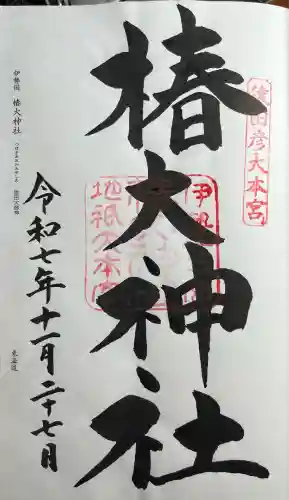 猿田彦大本宮
椿大神社
地祇大本宮
令和七年十一月二十七日
伊勢国 椿大神社
東海道